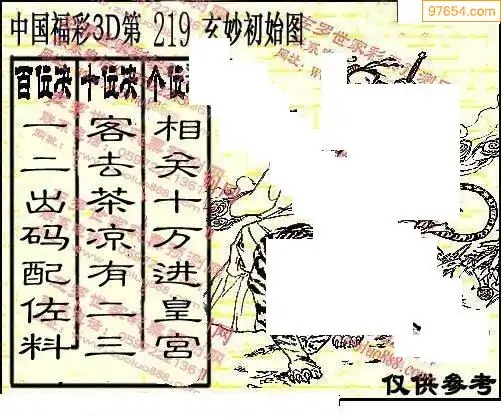 97654.com
中国福彩3D第 219 玄妙初始图
百位决 十位决 个位
一二出码配佐料
客去茶凉有二三
相矣十万进皇宫
仅供参考